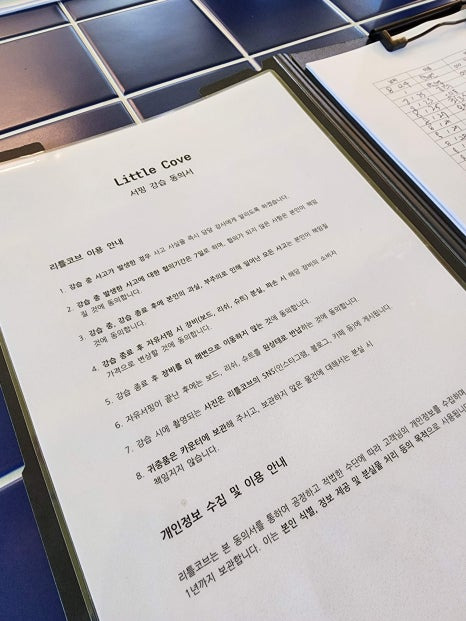 Little Cove
서핑 강습 동의서
리틀코브 이용 안내
1. 강습 중 사고가 발생한 경우 사고 사실을 즉시 담당 강사에게 알리도록 하겠습니다.
2. 강습 중 발생한 사고에 대한 협의기간은 7일로 하며, 협의가 되지 않은 사항은 본인이 책임
질 것에 동의합니다.
3. 강습 중, 강습 종료 후에 본인의 과실, 부주의로 인해 일어난 모든 사고는 본인이 책임질
것에 동의합니다.
4. 강습 종료 후 자유서핑 시 장비(보드, 리쉬, 슈트) 분실, 파손 시 해당 장비의 소비자
가격으로 변상할 것에 동의합니다.
5. 강습 종료 후 장비를 타 해변으로 이동하지 않는 것에 동의합니다.
6. 자유서핑이 끝난 후에는 보드, 리쉬, 슈트를 원상태로 반납하는 것에 동의합니다.
7. 강습 시에 촬영되는 사진은 리틀코브의 SNS(인스타그램, 블로그, 카페 등)에 게시됩니다.
8. 귀중품은 카운터에 보관해 주시고, 보관하지 않은 물건에 대해서는 분실 시
책임지지 않습니다.
개인정보 수집 및 이용 안내
리틀코브는 본 동의서를 통하여 공정하고 적법한 수단에 따라 고객님의 개인정보를 수집하며
1년까지 보관합니다. 이는 본인 식별, 정보 제공 및 분실물 처리 등의 목적으로 사용됩